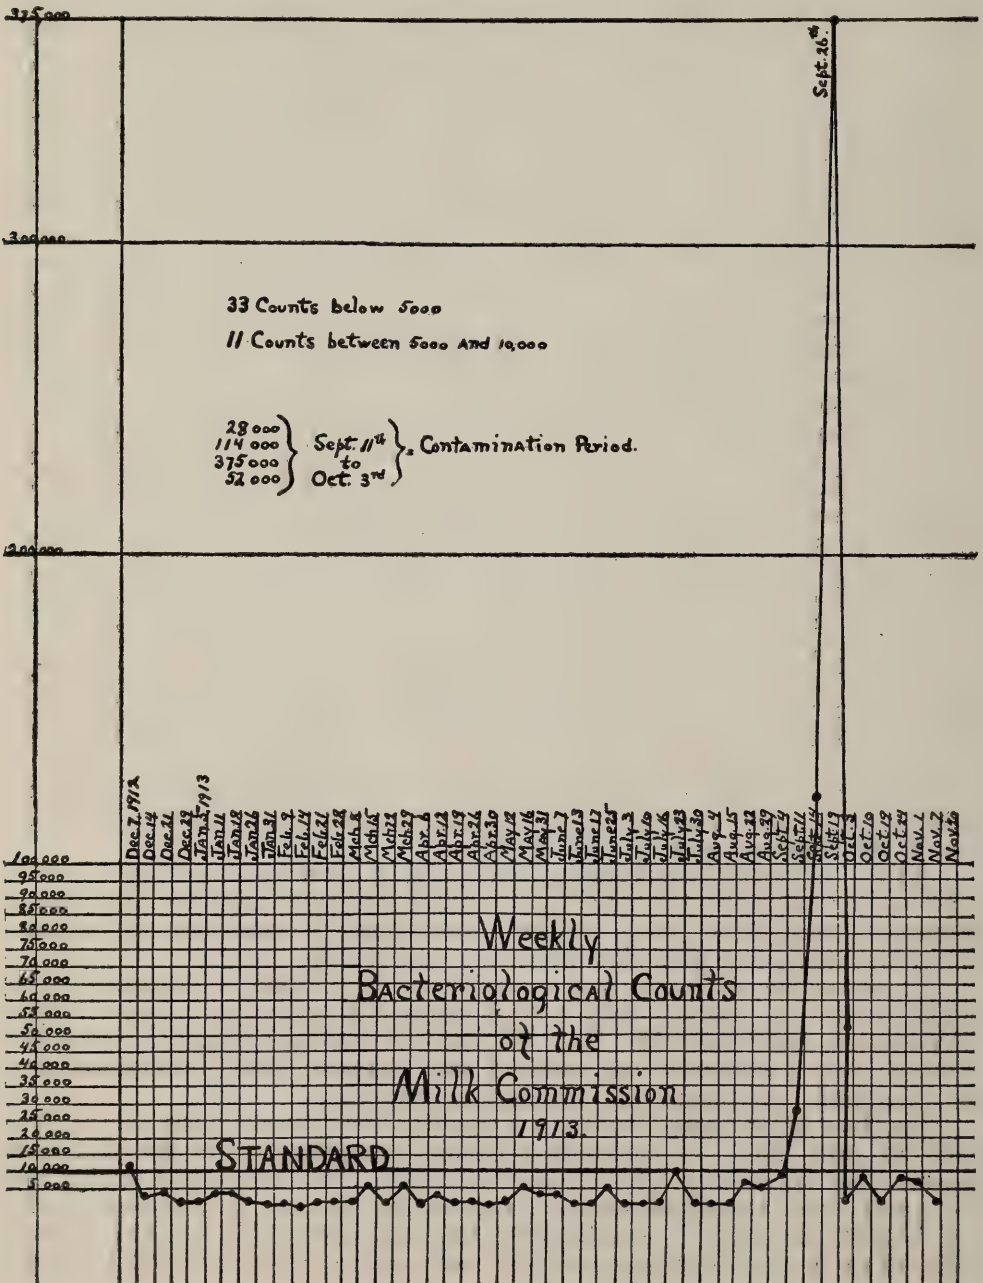 375000
Sept. 26th
300000
33 Counts below 5000
11 Counts between 5000 And 10,000
28000
114000
375000
52000
Sept. 11th
to
Oct. 3rd
= Contamination Period.
200000
Dec. 7 1912
Dec 14
Dec. 21
Dec. 29
Jan. 5 1913
Jan 11
Jan. 18
Jan. 26
Jan. 31
Feb. 9
Feb. 14
Feb. 21
Feb. 28
Mch. 8
Mch 15
Mch 22
Mch 29
Apr. 6
Apr. 12
Apr. 19
Apr. 26
Apr. 30
May 12
May 16
May 31
June 7
June 13
June 17
June 25
July 3
July 10
July 16
July 23
July 30
Aug. 4
Aug. 15
Aug. 22
Aug. 29
Sept. 4
Sept. 11
Sept. 19
Oct. 3
Oct 10
Oct 19
Oct 24
Nov. 1
Nov. 7
100,000
95000
90,000
85000
80000
75000
70000
65000
60000
55000
50000
45000
40000
35000
30000
25000
20000
15000
10000
5000
Weekly
Bacteriological Counts
of the
Milk Commission
1913.
STANDARD